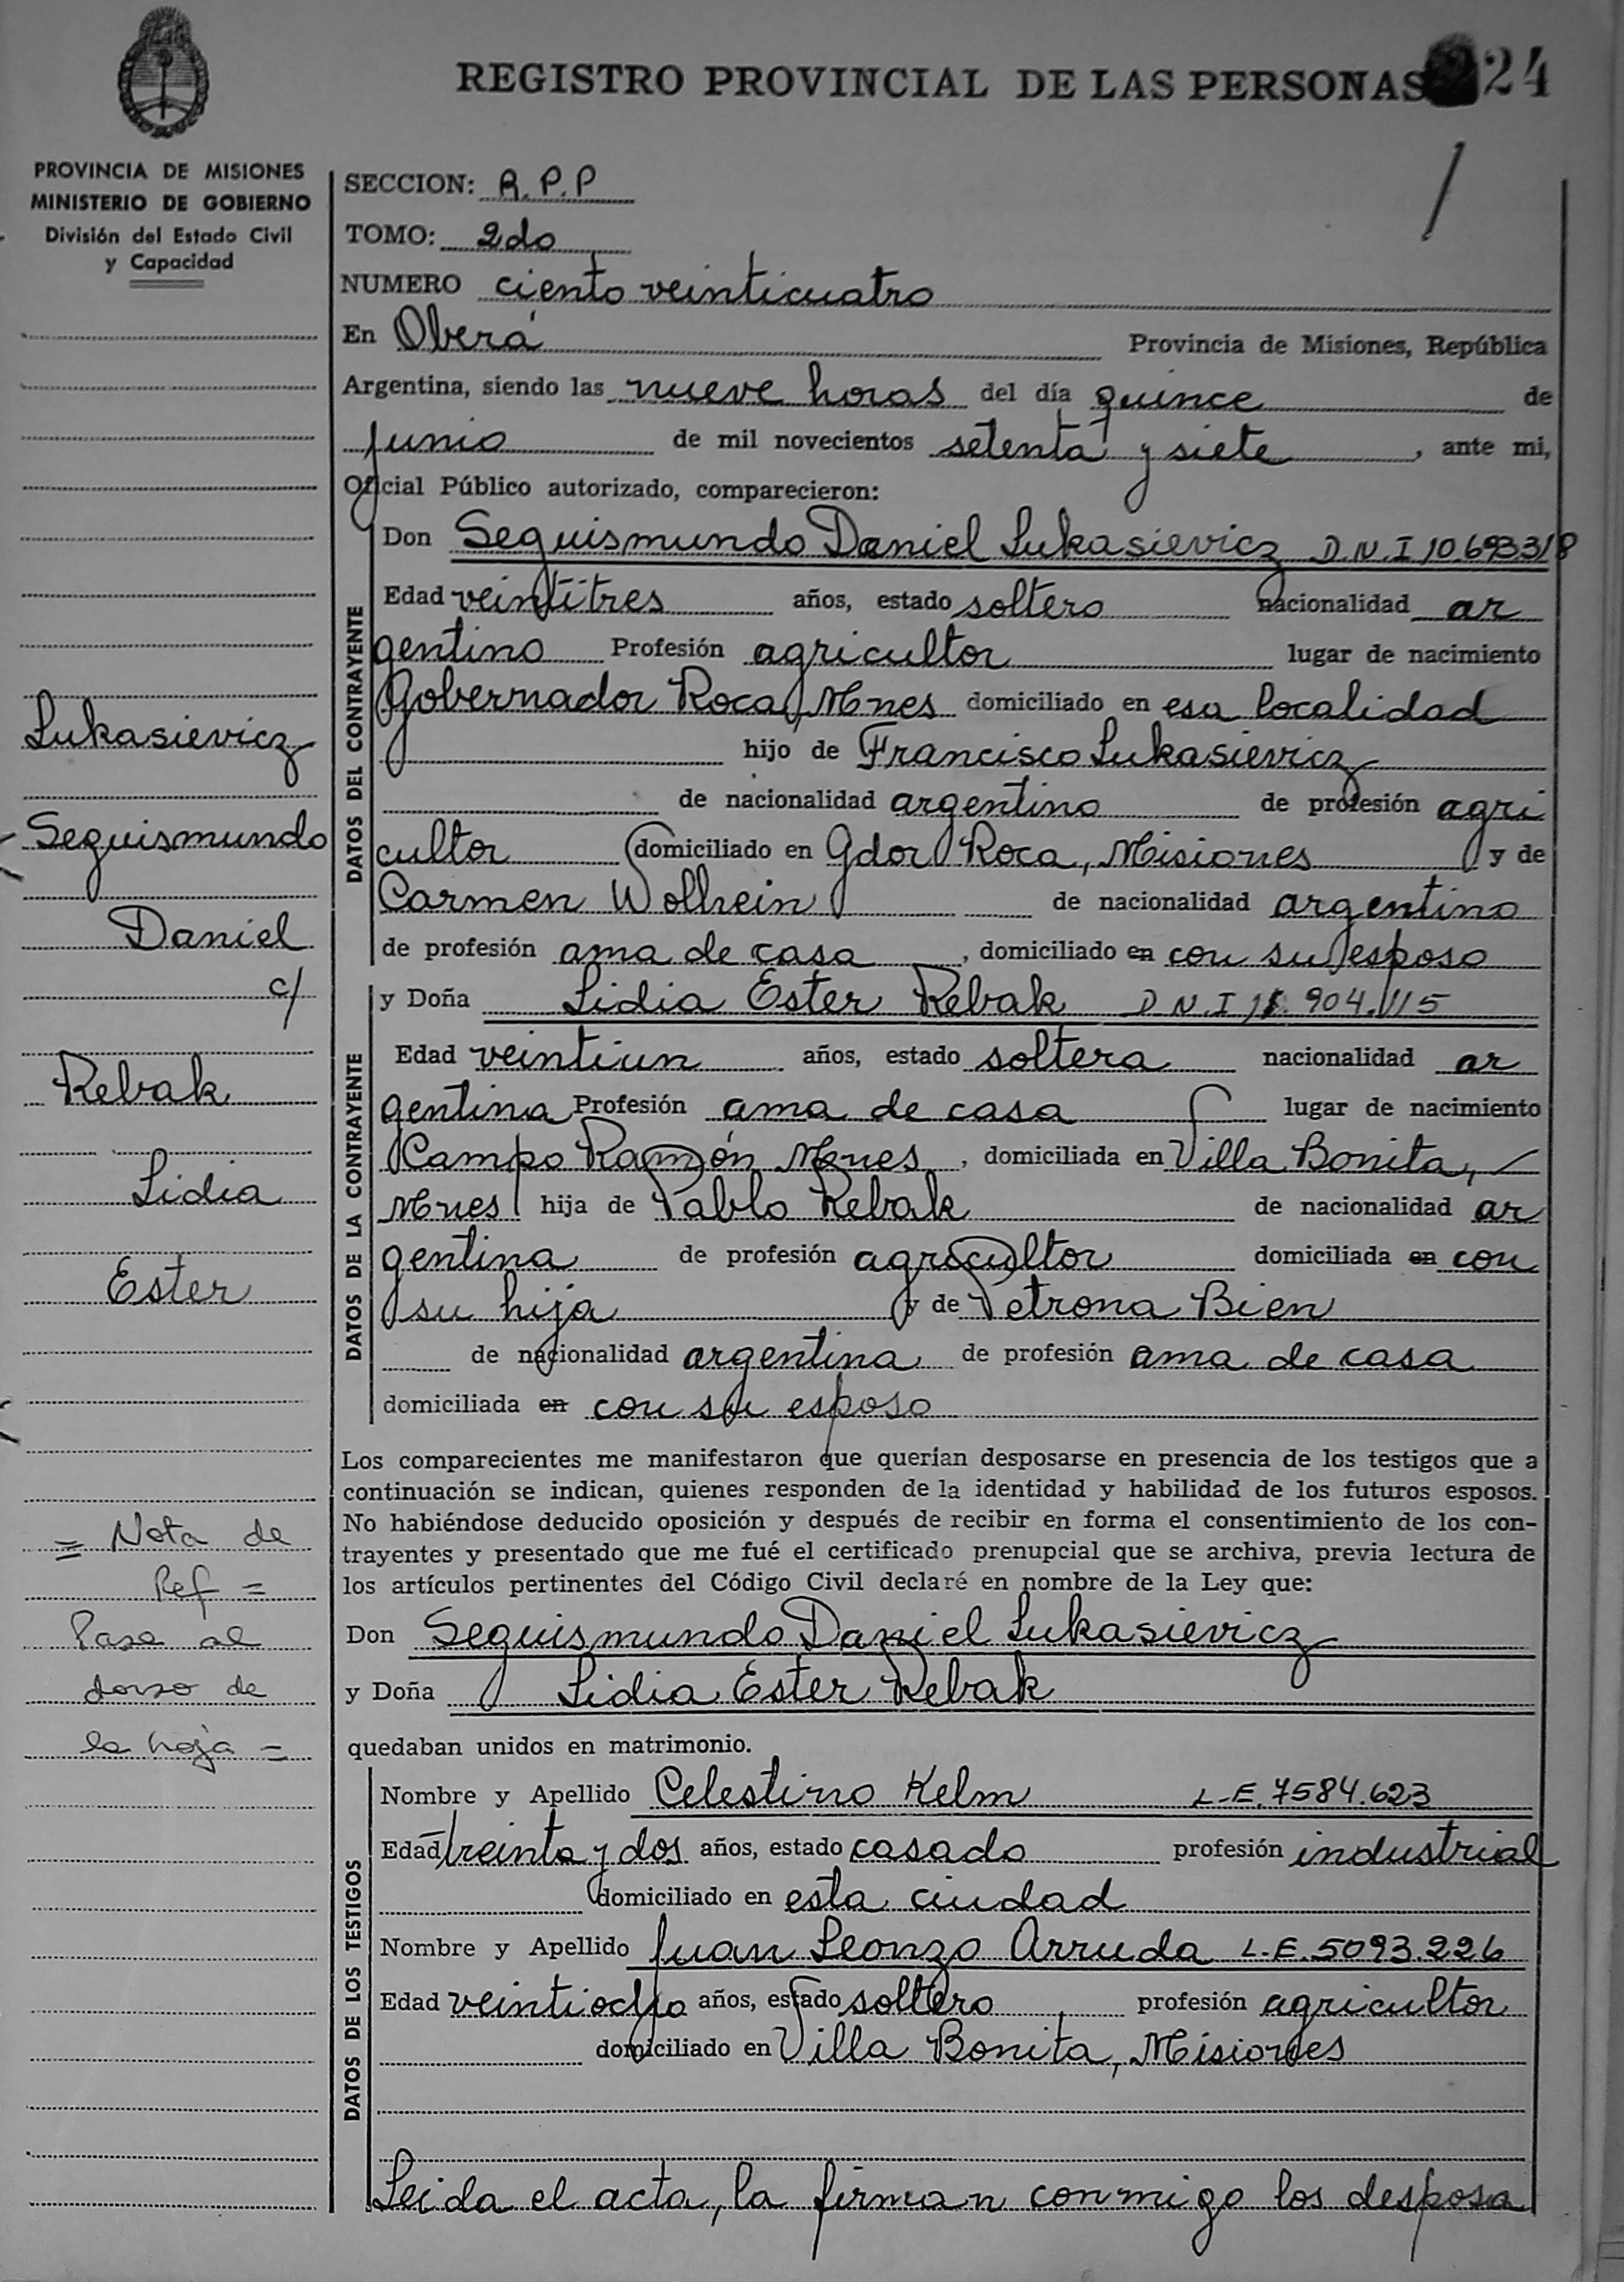 REGISTRO PROVINCIAL DE LAS PERSONAS 24
PROVINCIA DE MISIONES
MINISTERIO DE GOBIERNO
División del Estado Civil
y Capacidad
SECCION: R.P.P
TOMO: 2do
NUMERO ciento veinticuatro
En Oberá Provincia de Misiones, República
Argentina, siendo las nueve horas del día quince de
junio de mil novecientos setenta y siete, ante mi,
Oficial Público autorizado, comparecieron:
DATOS DEL CONTRAYENTE
Don Seguismundo Daniel Lukasievicz D.N.I 10693318
Edad veintitres años, estado soltero nacionalidad ar
gentino Profesión agricultor lugar de nacimiento
Gobernador Roca, Mnes domiciliado en esa localidad
hijo de Francisco Lukasievicz
de nacionalidad argentino de profesión agri
cultor domiciliado en Gdor Roca, Misiones y de
Carmen Wolhein de nacionalidad argentino
de profesión ama de casa, domiciliado en con su esposo
DATOS DE LA CONTRAYENTE
y Doña Lidia Ester Rebak D.N.I 904.115
Edad veintiun años, estado soltera nacionalidad ar
gentina Profesión ama de casa lugar de nacimiento
Campo Ramón Mnes, domiciliada en Villa Bonita,
Mnes hija de Pablo Rebak de nacionalidad ar
gentina de profesión agricultor domiciliada en con
su hija y de Petrona Bien
de nacionalidad argentina de profesión ama de casa
domiciliada en con su esposo
Los comparecientes me manifestaron que querían desposarse en presencia de los testigos que a
continuación se indican, quienes responden de la identidad y habilidad de los futuros esposos.
No habiéndose deducido oposición y después de recibir en forma el consentimiento de los con-
trayentes y presentado que me fué el certificado prenupcial que se archiva, previa lectura de
los artículos pertinentes del Código Civil declaré en nombre de la Ley que:
Don Seguismundo Daniel Lukasievicz
y Doña Lidia Ester Rebak
quedaban unidos en matrimonio.
DATOS DE LOS TESTIGOS
Nombre y Apellido Celestino Kelm L.E. 7584.623
Edad treinta y dos años, estado casado profesión industrial
domiciliado en esta ciudad
Nombre y Apellido Juan Leonzo Arruda L.E. 5093.226
Edad veintiocho años, estado soltero profesión agricultor
domiciliado en Villa Bonita, Misiones
Leida el acta, la firman conmigo los desposa
Lukasievicz
Seguismundo
Daniel
c/
Rebak
Lidia
Ester
= Nota de
Ref =
Pasa al
dorso de
la hoja =